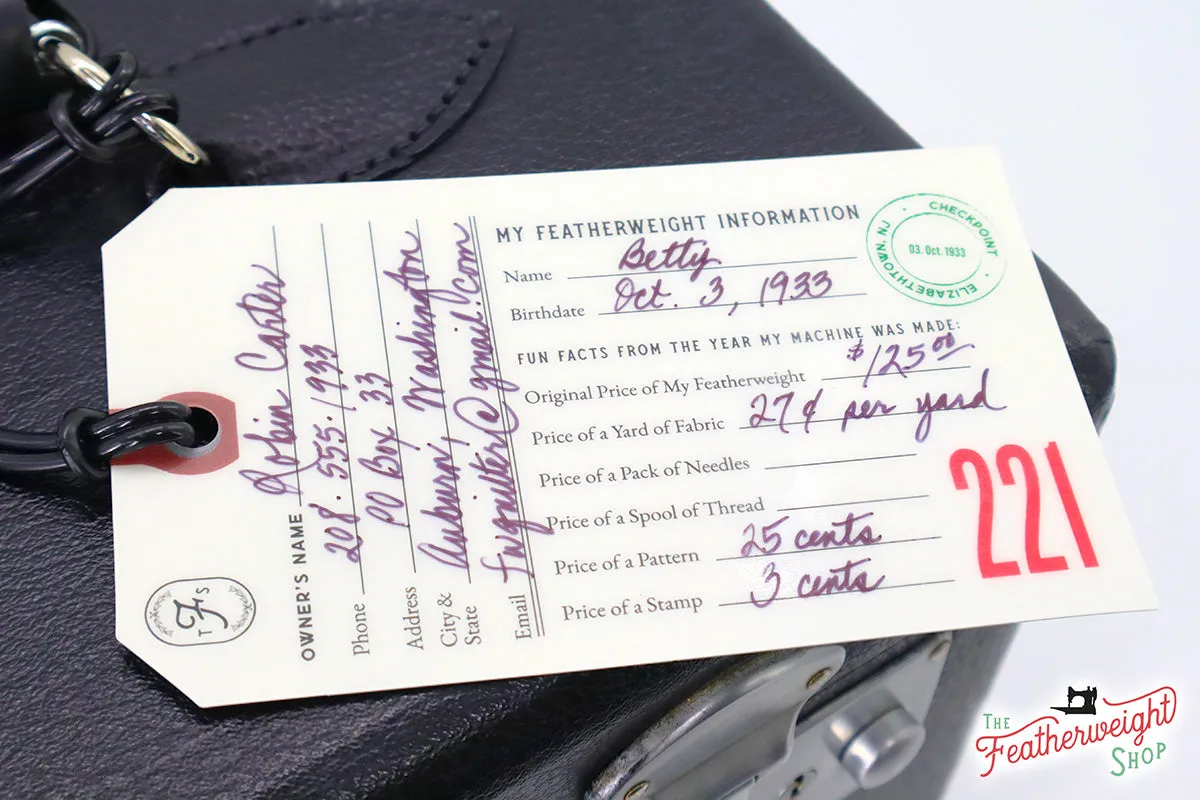 OWNER'S NAME Robin Carter
Phone 208.555.1933
Address PO Box 33
City & State Auburn, Washington
Email fwquilter@gmail.com
MY FEATHERWEIGHT INFORMATION
Name Betty
Birthdate Oct. 3, 1933
FUN FACTS FROM THE YEAR MY MACHINE WAS MADE:
Original Price of My Featherweight $125.00
Price of a Yard of Fabric 27¢ per yard
Price of a Pack of Needles
Price of a Spool of Thread
Price of a Pattern 25 cents
Price of a Stamp 3 cents
CHECKPOINT • ELIZABETHTOWN, NJ •
03. Oct. 1933
221
TFS
THE
Featherweight
SHOP